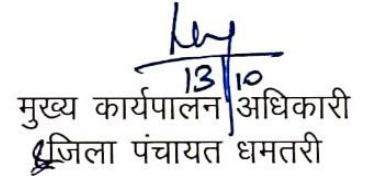 13/10
मुख्य कार्यपालन अधिकारी
जिला पंचायत धमतरी